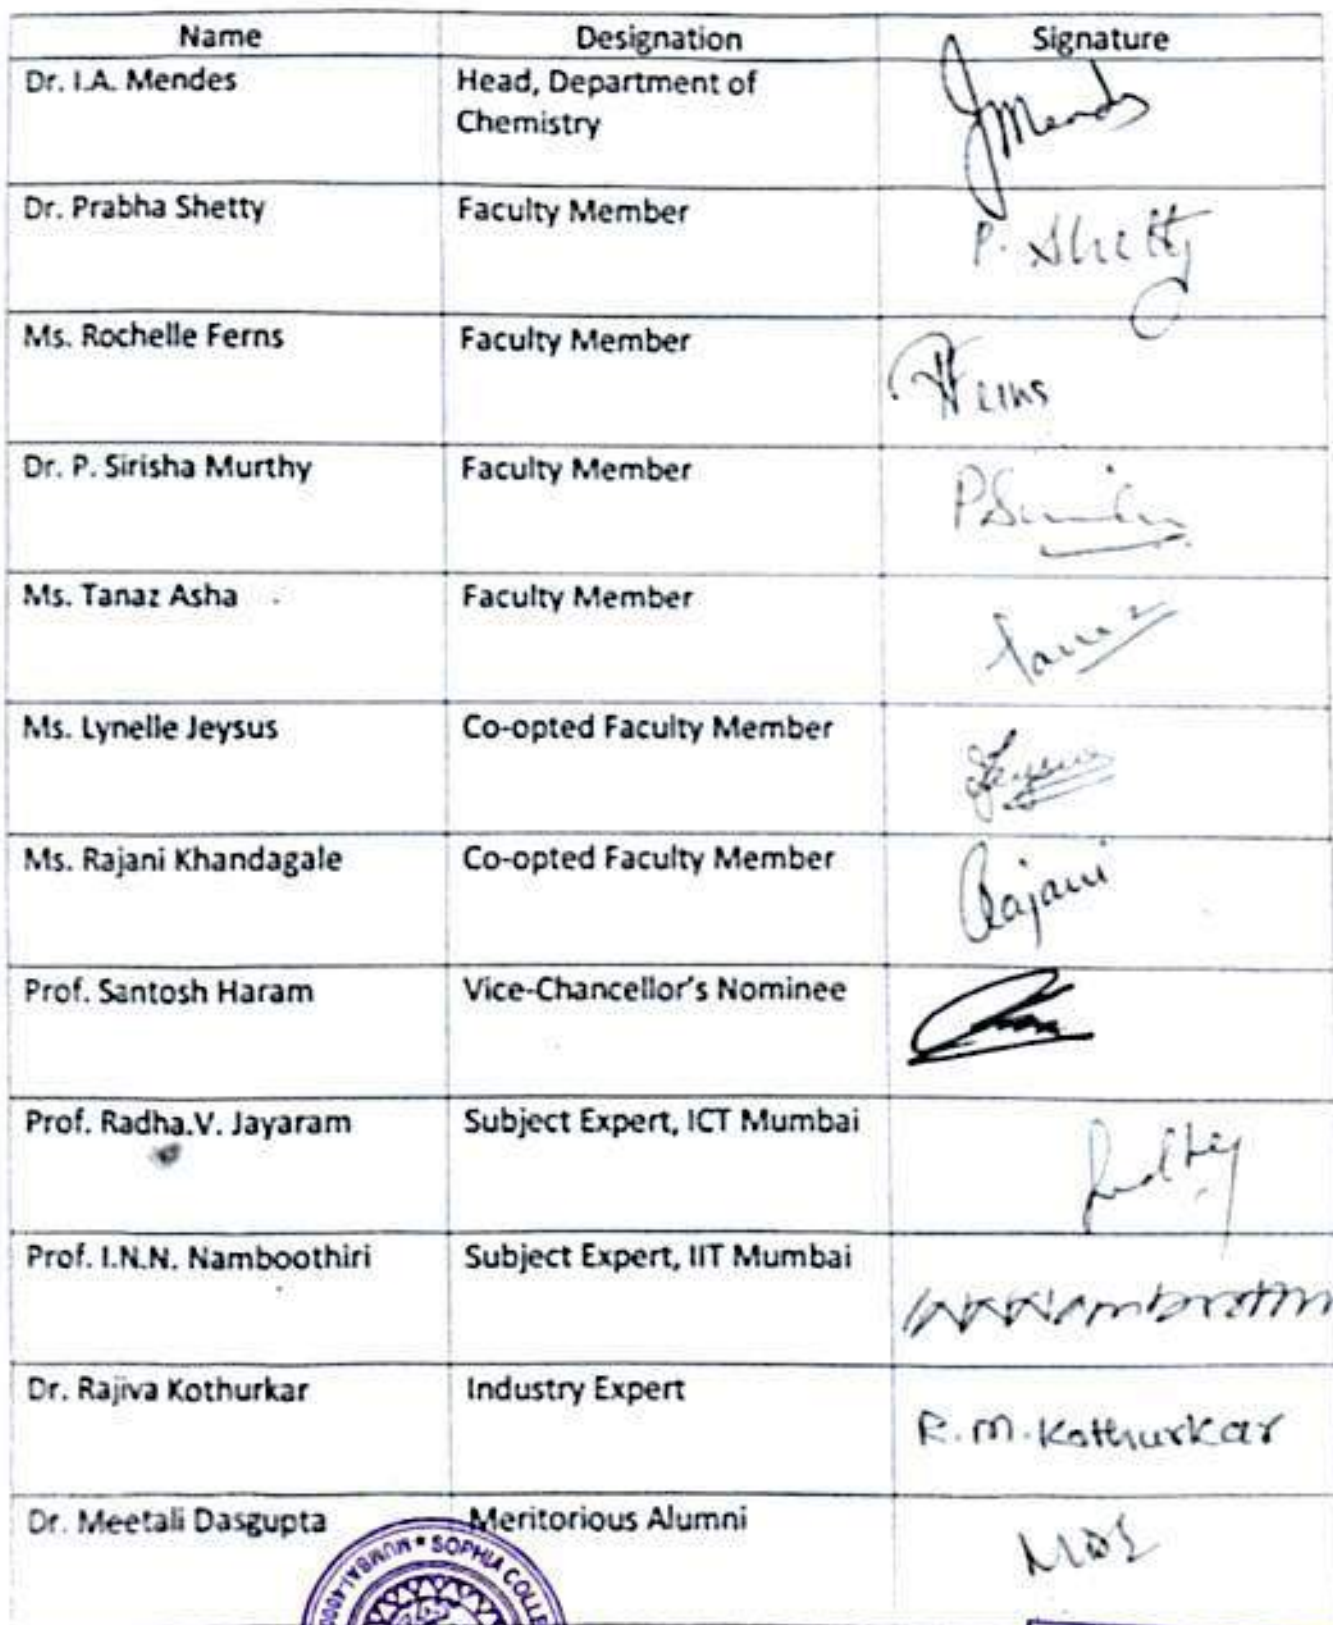 Name Designation Signature
Dr. I.A. Mendes Head, Department of
Chemistry
Dr. Prabha Shetty Faculty Member P. Shetty
Ms. Rochelle Ferns Faculty Member Ferns
Dr. P. Sirisha Murthy Faculty Member
Ms. Tanaz Asha Faculty Member
Ms. Lynelle Jeysus Co-opted Faculty Member Jeysus
Ms. Rajani Khandagale Co-opted Faculty Member Rajani
Prof. Santosh Haram Vice-Chancellor's Nominee
Prof. Radha.V. Jayaram Subject Expert, ICT Mumbai
Prof. I.N.N. Namboothiri Subject Expert, IIT Mumbai
Dr. Rajiva Kothurkar Industry Expert R.M. Kothurkar
Dr. Meetali Dasgupta Meritorious Alumni
MUMBAI-400 * SOPHIA COLLE